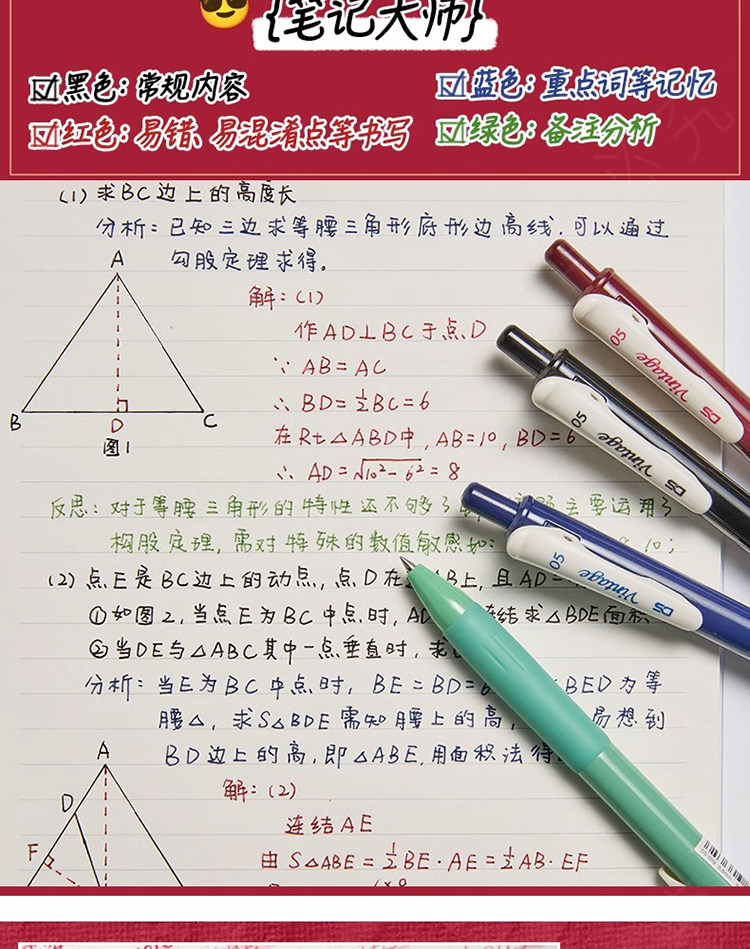 {笔记大师}
黑色：常规内容
蓝色：重点词等记忆
红色：易错、易混淆点等书写
绿色：备注分析
(1) 求BC边上的高度长
分析：已知三边求等腰三角形底形边高线，可以通过
勾股定理求得。
A
解：(1)
作AD⊥BC于点D
∵ AB=AC
∴ BD=½BC=6
B
D
C
图1
在Rt△ABD中，AB=10，BD=6
∴ AD=√10²-6²=8
05
Vintage
DS
05
Vintage
DS
05
Vintage
DS
反思：对于等腰三角形的特性还不够 主要运用了
构股定理，需对特殊的数值敏感如： 10；
(2) 点E是BC边上的动点，点D在 AB上，且AD
①如图2，当点E为BC中点时，AD 连结求△BDE面积
②当DE与△ABC其中一点垂直时，求
分析：当E为BC中点时，BE=BD=6 △BED为等
腰△，求S△BDE需知腰上的高， 易想到
BD边上的高，即△ABE，用面积法得
A
D
F
解：(2)
连结AE
由S△ABE=½BE·AE=½AB·EF